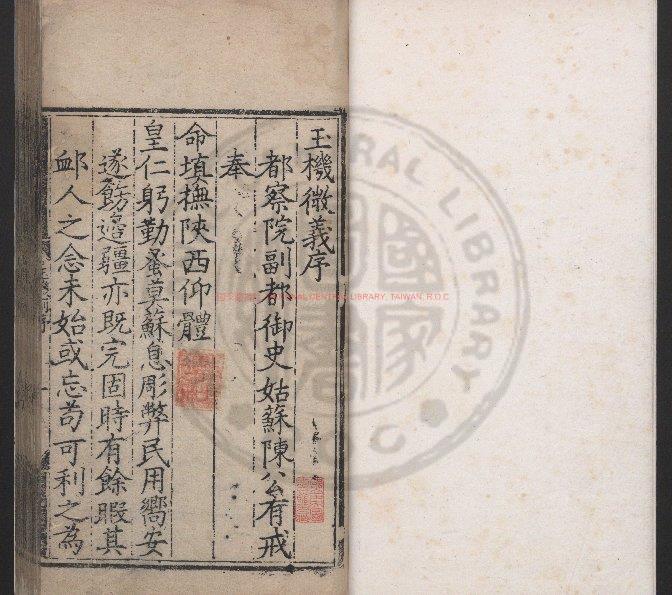 玉機微義序
都察院副都御史姑蘇陳公有戒
奉
命填撫陝西仰體
皇仁躬勤蚤莫蘇息彫弊民用嚮安
遂飭邊疆亦既完固時有餘暇其
䘏人之念未始或忘苟可利之為
NATIONAL CENTRAL LIBRARY, TAIWAN, R.O.C